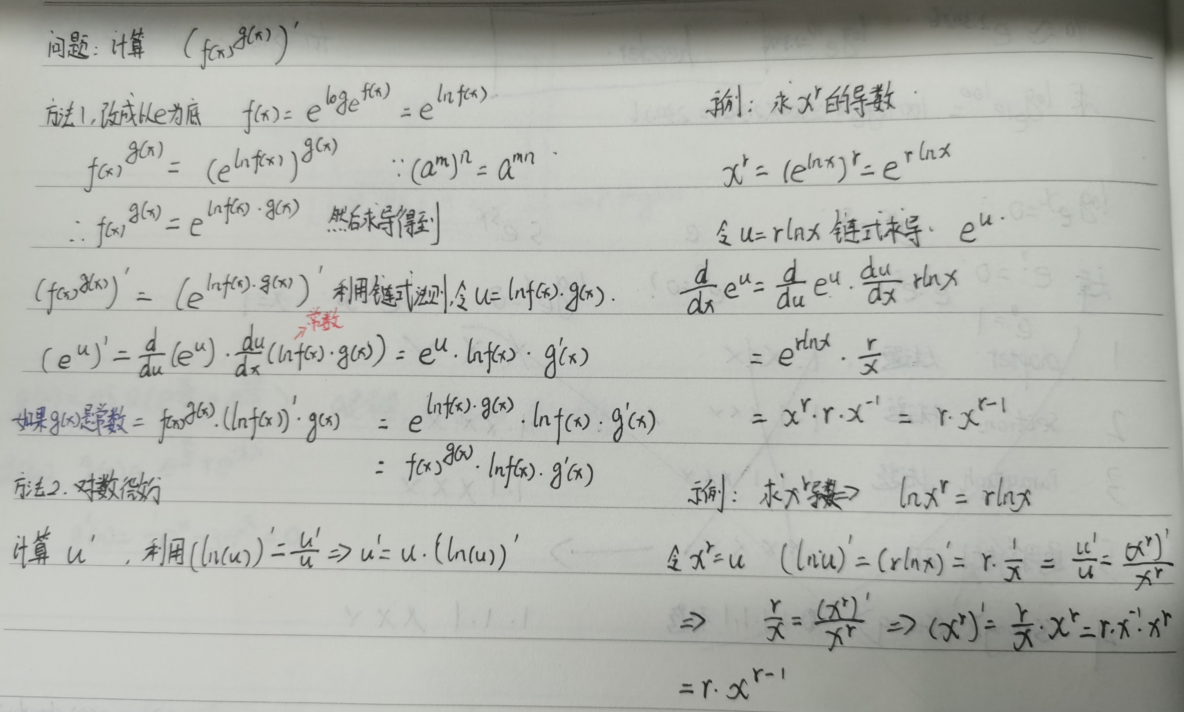 问题: 计算 (f(x)^{g(x)})'
方法1, 改成以e为底 f(x) = e^{log_e f(x)} = e^{ln f(x)}
f(x)^{g(x)} = (e^{ln f(x)})^{g(x)} ∵ (a^m)^n = a^{mn}
∴ f(x)^{g(x)} = e^{ln f(x)·g(x)} 然后求导得到
(f(x)^{g(x)})' = (e^{ln f(x)·g(x)})' 利用链式法则, 令 u = ln f(x)·g(x).
常数
(e^u)' = d/du (e^u) · du/dx (ln f(x)·g(x)) = e^u · ln f(x) · g'(x)
如果g(x)是常数 = f(x)^{g(x)}·(ln f(x))'·g(x) = e^{ln f(x)·g(x)} · ln f(x) · g'(x)
= f(x)^{g(x)} · ln f(x) · g'(x)
方法2. 对数微分
计算 u', 利用 (ln(u))' = u'/u ⇒ u' = u·(ln(u))'
示例: 求 x^r 的导数
x^r = (e^{ln x})^r = e^{r ln x}
令 u = r ln x 链式求导. e^u.
d/dx e^u = d/du e^u · du/dx r ln x
= e^{r ln x} · r/x
= x^r · r · x^{-1} = r · x^{r-1}
示例: 求 x^r 导数 ⇒ ln x^r = r ln x
令 x^r = u (ln u)' = (r ln x)' = r · 1/x = u'/u = (x^r)'/x^r
⇒ r/x = (x^r)'/x^r ⇒ (x^r)' = r/x · x^r = r·x^{-1}·x^r
= r · x^{r-1}